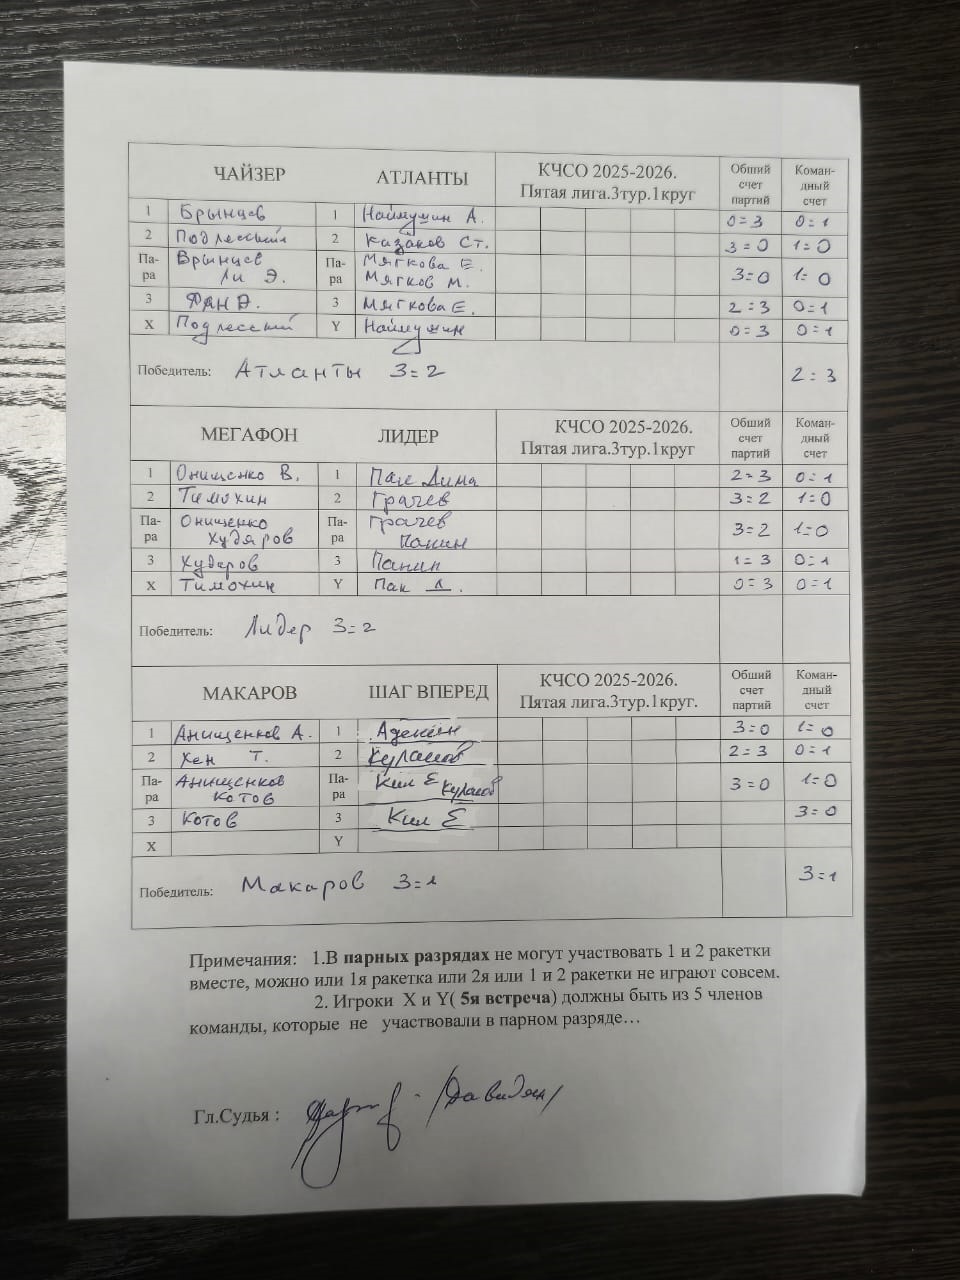 ЧАЙЗЕР АТЛАНТЫ КЧСО 2025-2026. Пятая лига.3тур.1круг Общий счет партий Коман-дный счет
1 Брынцев 1 Наймушин А. 0=3 0=1
2 Подлесный 2 Казаков Ст. 3=0 1=0
Па-ра Брынцев Ли Э. Па-ра Мягкова Е. Мягков М. 3=0 1=0
3 Фан Э. 3 Мягкова Е. 2=3 0=1
X Подлесный Y Наймушин 0=3 0=1
Победитель: Атланты 3=2 2=3
МЕГАФОН ЛИДЕР КЧСО 2025-2026. Пятая лига.3тур.1круг Общий счет партий Коман-дный счет
1 Онищенко В. 1 Пак Дима 2=3 0=1
2 Тимохин 2 Грачев 3=2 1=0
Па-ра Онищенко Худяров Па-ра Грачев Панин 3=2 1=0
3 Худяров 3 Панин 1=3 0=1
X Тимохин Y Пак Д. 0=3 0=1
Победитель: Лидер 3=2
МАКАРОВ ШАГ ВПЕРЕД КЧСО 2025-2026. Пятая лига.3тур.1круг. Общий счет партий Коман-дный счет
1 Анищенков А. 1 3=0 1=0
2 Хен Т. 2 Кулаков 2=3 0=1
Па-ра Анищенков Котов Па-ра Ким Е Кулаков 3=0 1=0
3 Котов 3 Ким Е 3=0
X Y
Победитель: Макаров 3=1 3=1
Примечания: 1.В парных разрядах не могут участвовать 1 и 2 ракетки
вместе, можно или 1я ракетка или 2я или 1 и 2 ракетки не играют совсем.
2. Игроки X и Y( 5я встреча) должны быть из 5 членов
команды, которые не участвовали в парном разряде…
Гл.Судья : /Давидян/